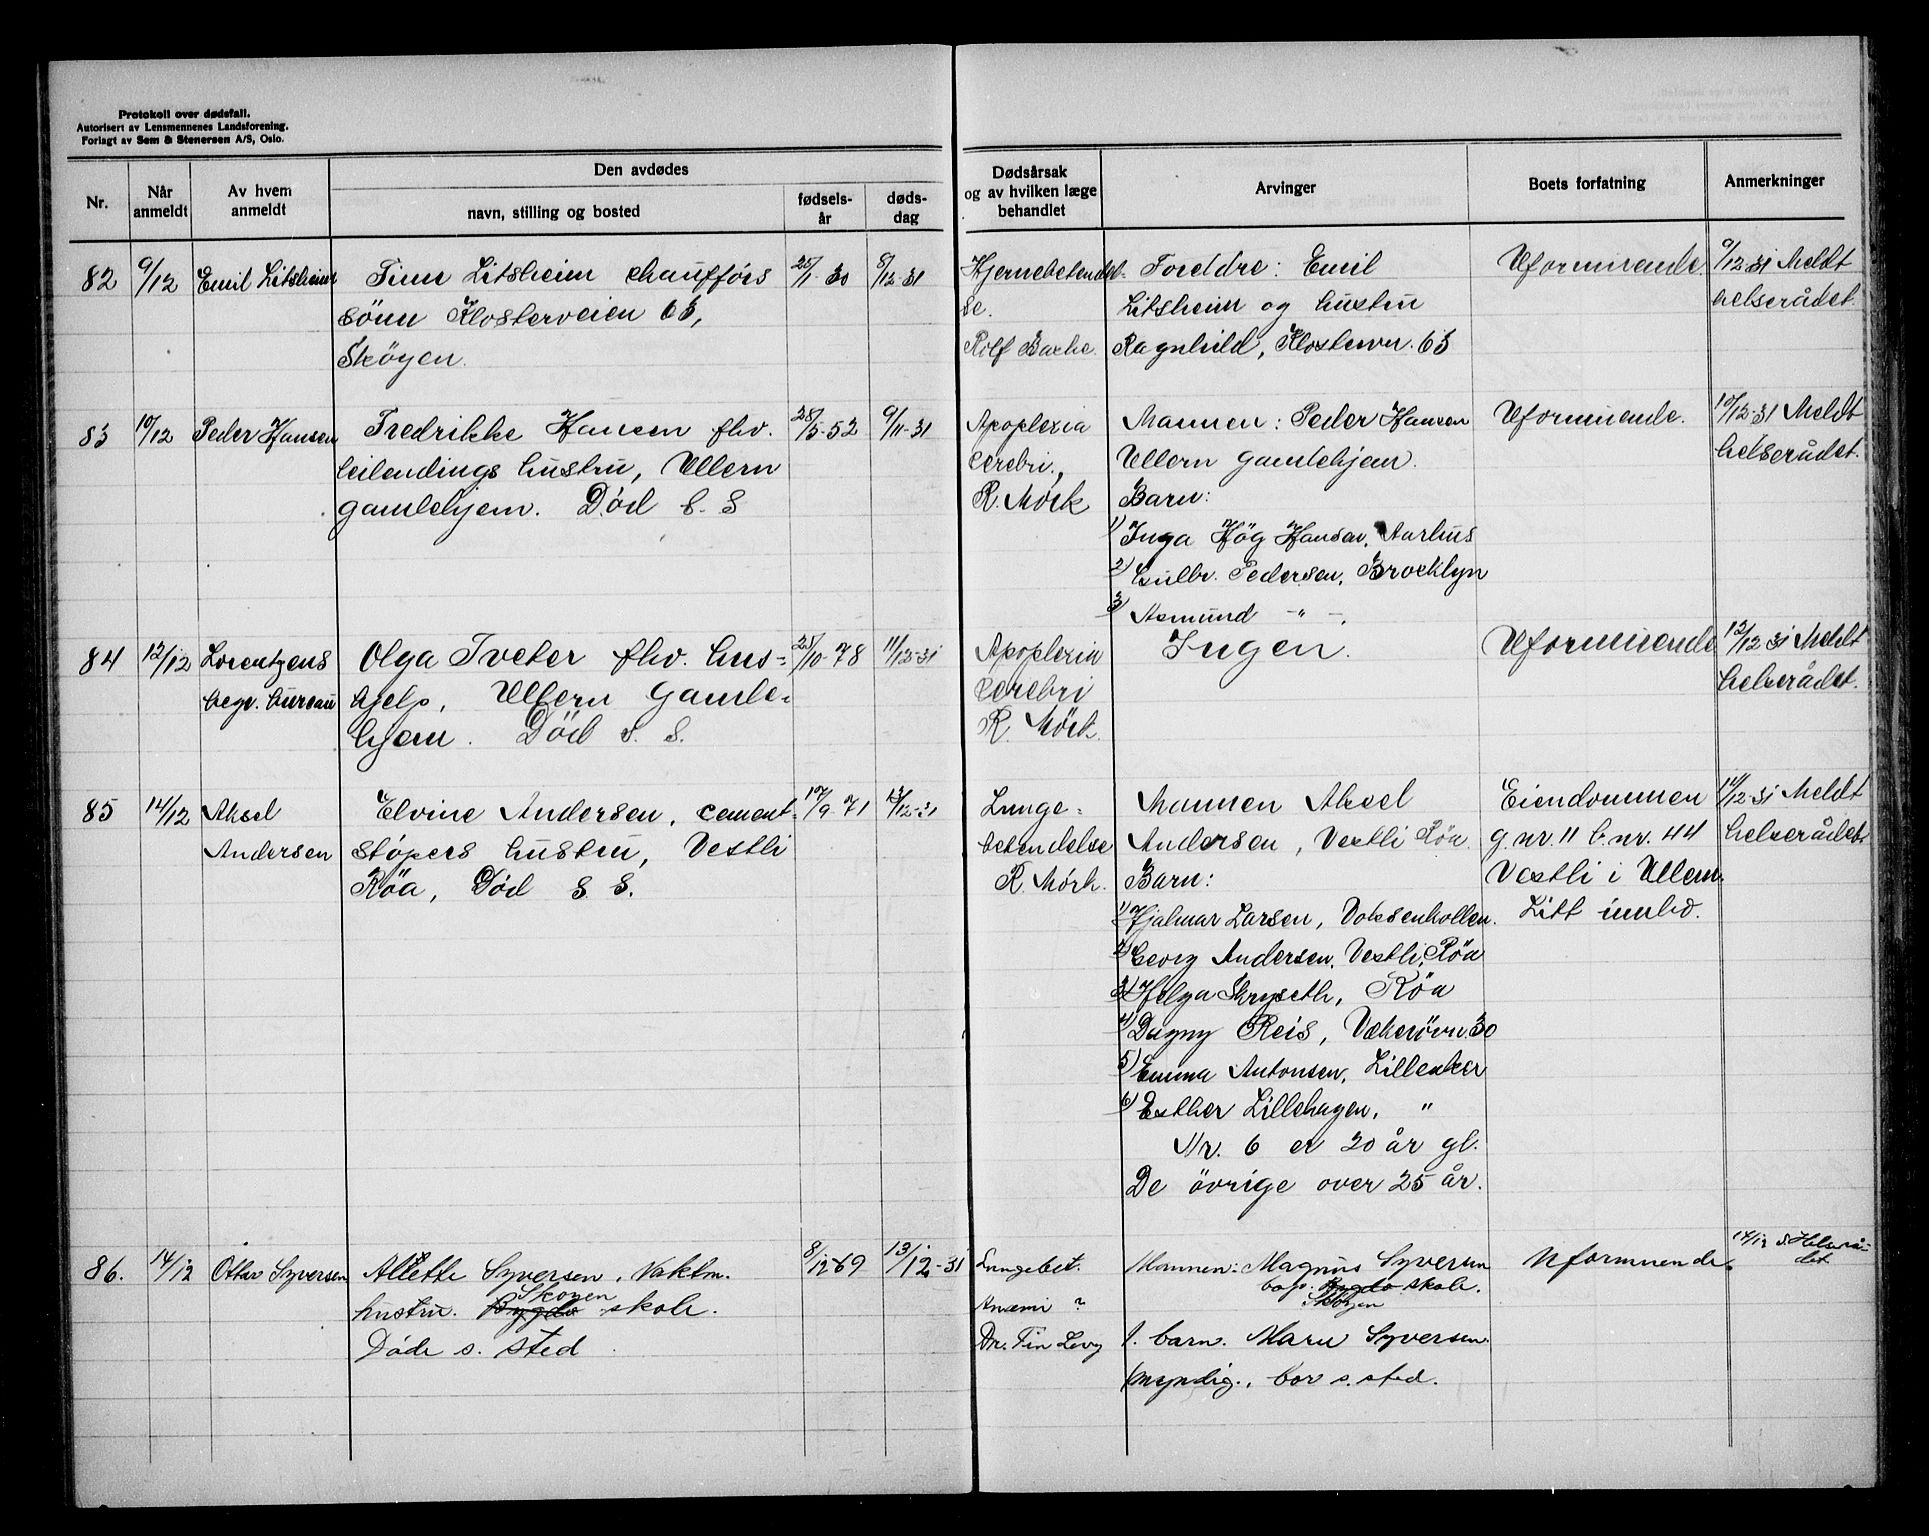 Protokoll over dødsfall.
Autorisert av Lensmennenes Landsforening.
Forlagt av Sem & Stenersen A/S, Oslo.
Nr.
Når anmeldt
Av hvem anmeldt
Den avdødes
navn, stilling og bosted
fødsels-år
døds-dag
Dødsårsak og av hvilken læge behandlet
Arvinger
Boets forfatning
Anmerkninger
82 9/12 Emil Litsheim
Finn Litsheim chaufførs
sönn Klosterveien 63,
Sköyen.
25/1 30 8/12-31
Hjernebetendel-
se.
Rolf Bache.
Foreldre: Emil
Litsheim og hustru
Ragnhild, Klosterv. 63
Uformuende
9/12-31 Meldt
helserådet.
83 10/12 Peder Hansen
Fredrikke Hansen fhv.
leilendings hustru, Ullern
gamlehjem. Död s. S
28/5-52 9/11-31
Apoplexia
cerebri.,
R. Mörk
Mannen: Peder Hansen
Ullern gamlehjem.
Barn:
1) Inga Høg Hansen, Aarhus
2) Gulbr. Pedersen, Brocklyn
3) Asmund -"-.
Uformuende.
10/12-31 Meldt
helserådet.
84 12/12 Lorentzens
begr. bureau
Olga Tveter fhv. hus-
hjelp, Ullern Gamle-
hjem. Död s. S.
25/10-78 11/12-31
Apoplexia
cerebri
R. Mörk.
Ingen.
Uformuende
12/12 31 Meldt
helserådet.
85 14/12 Aksel
Andersen
Elvine Andersen, cement-
støpers hustru, Vestli
Röa, Död S. S.
17/9-71 13/12-31
Lunge-
betendelse
R. Mörk.
Mannen Aksel
Andersen, Vestli Röa.
Barn:
1) Hjalmar Larsen, Voksenkollen.
2) Georg Andersen, Vestli, Röa
3) Helga Skryseth, Röa
4) Dagny Reis, Vækerövn. 30
5) Emma Antonsen, Lilleaker
6) Esther Lillehagen, "
Nr. 6 er 20 år gl.
De övrige over 25 år.
Eiendommen
g.nr. 11 b.nr. 44
Vestli i Ullern.
Litt innbo.
14/12-31 Meldt
helserådet.
86. 14/12 Ottar Syversen
Allette Syversen, Vaktm.
hustru. Bygdø Skøyen skole.
Døde s. sted
8/12-69 13/12-31
Lungebet.
Anæmi ?
Dr. Fin Levy
Mannen: Magnus Syversen
bop. Bygdø skole.
Skøyen
1. barn. Marie Syversen
myndig., bor s. sted.
Uformuende.
14/12 s. Helserå-
det